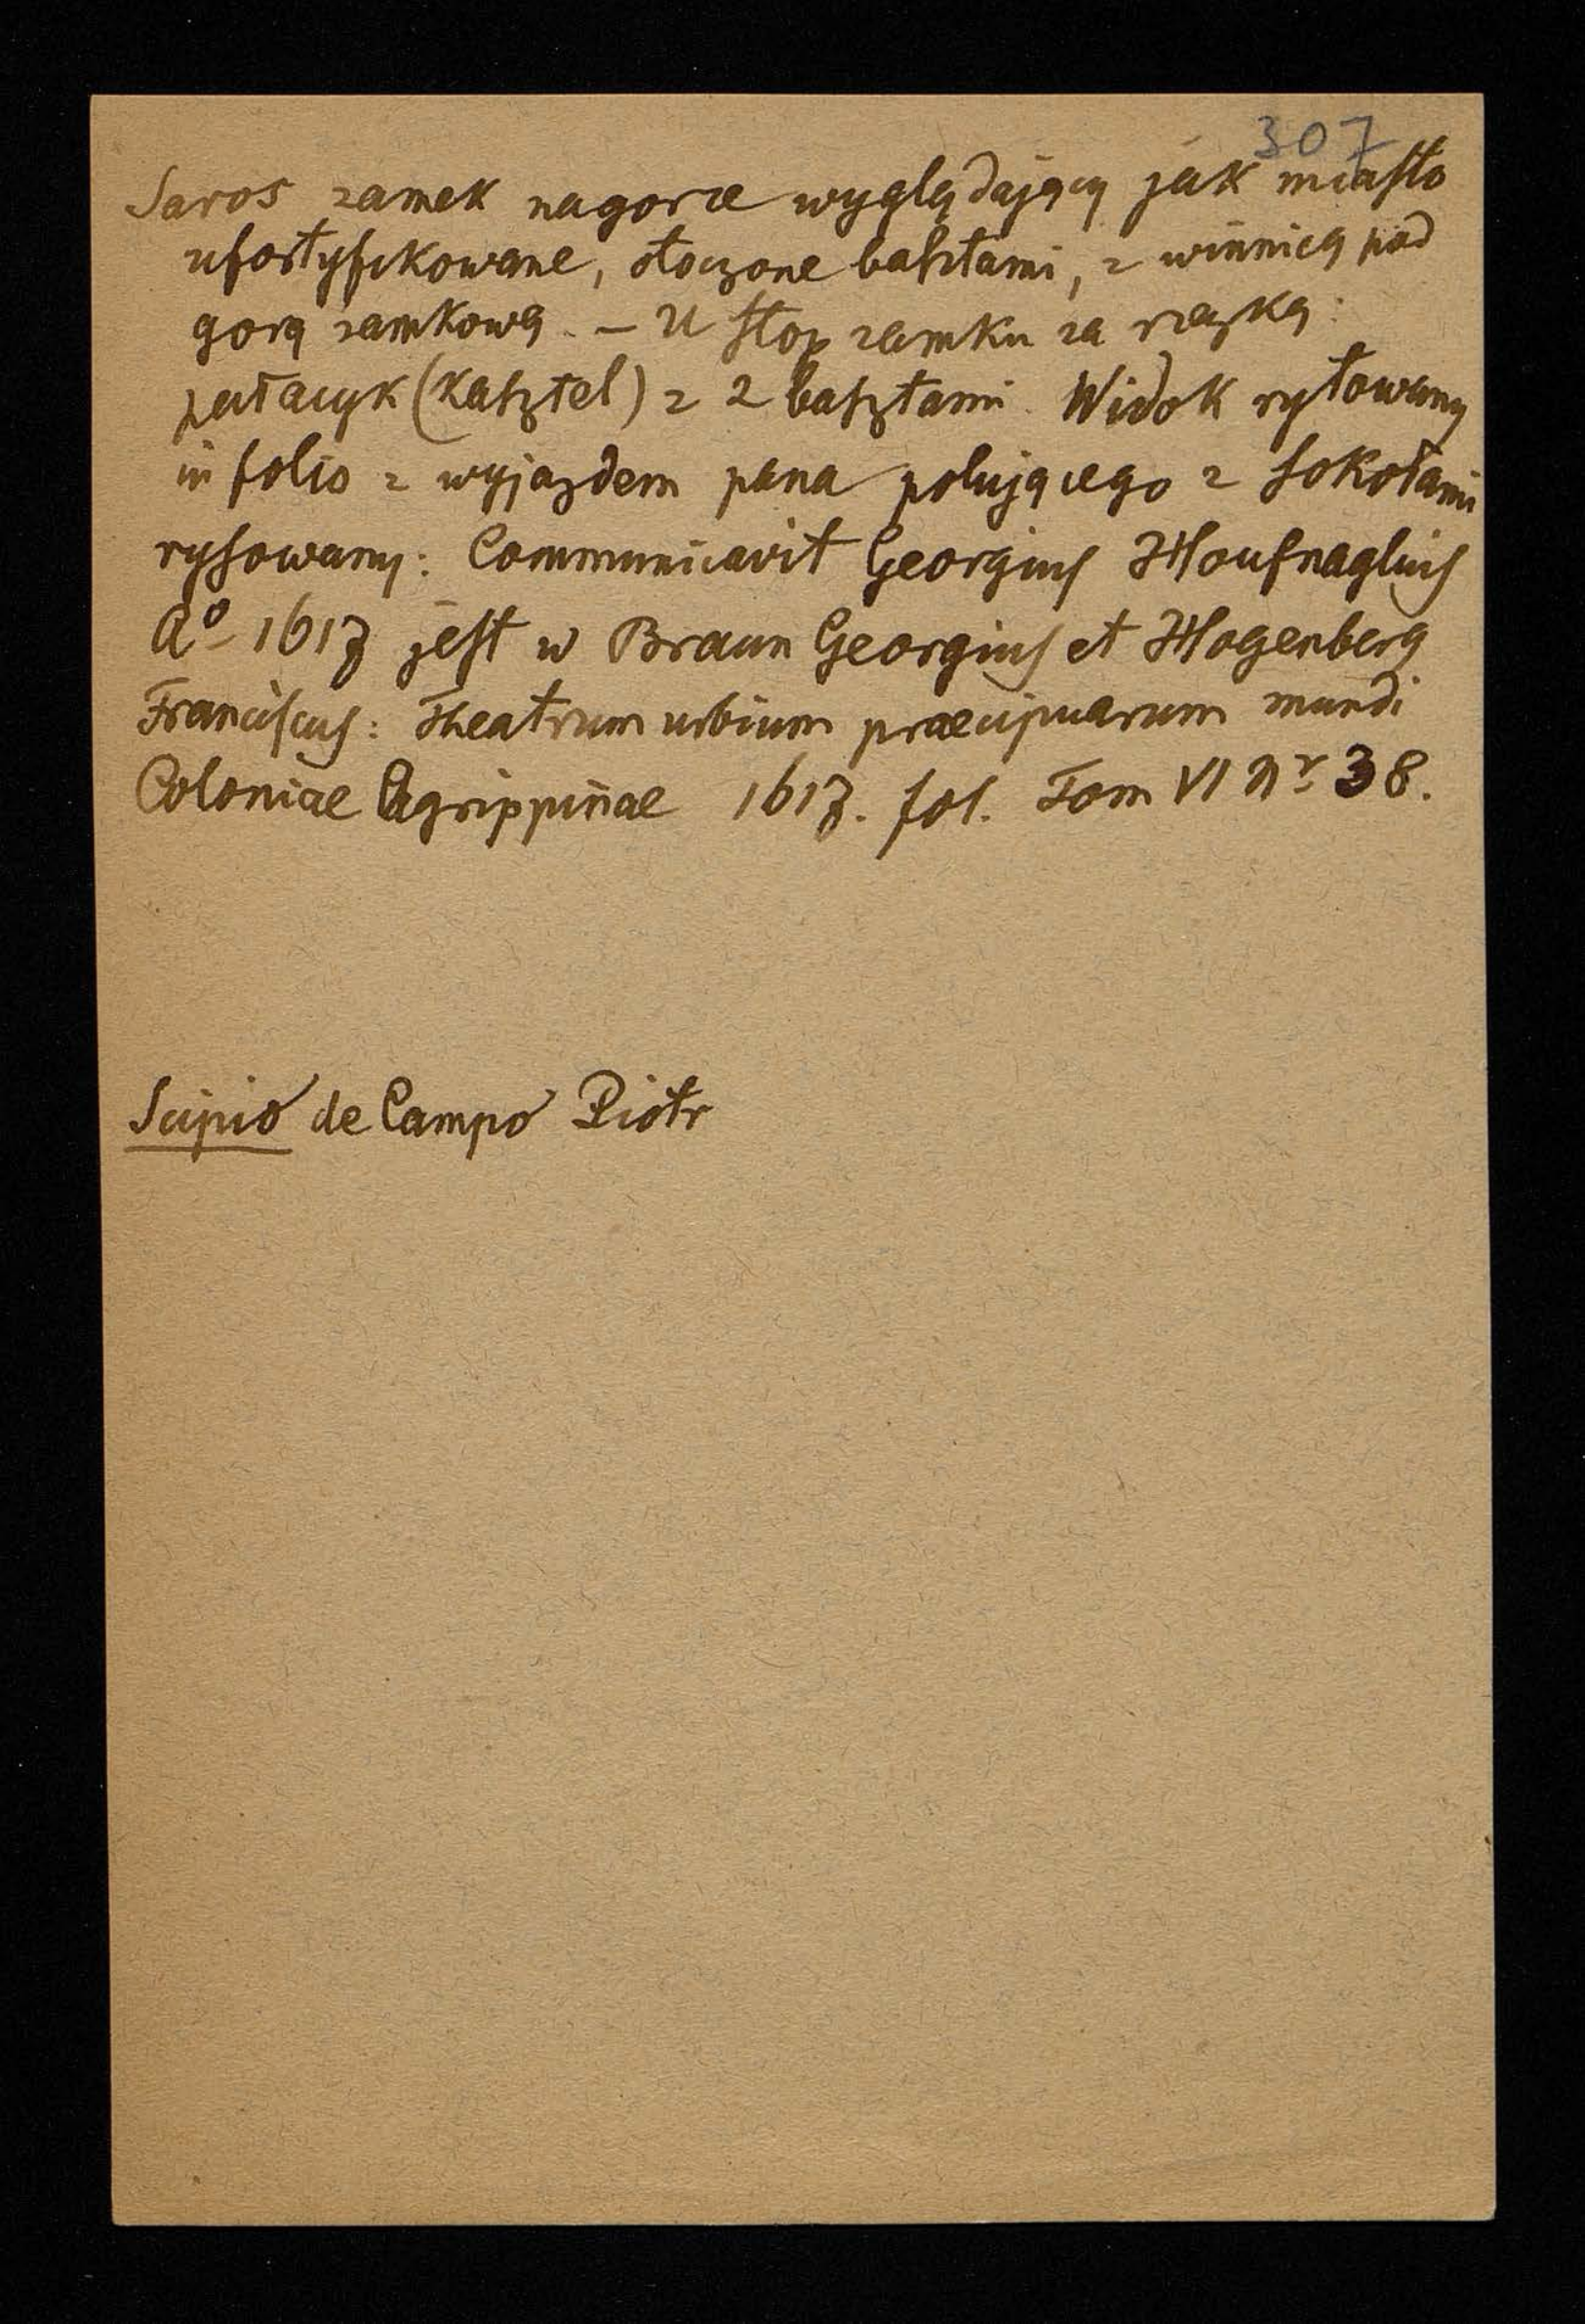 307
Saros zamek nagorze wyglądający jak miasto
ufortyfikowane, otoczone basztami, z winnicą pod
gorą zamkową. – U stop zamku za rzeczką:
pałacyk (kasztel) z 2 basztami. Widok rytowany
in folio z wyjazdem pana polującego z sokołami
rysowany: Communicavit Georgius Houfnaglius
Aº 1617 jest w Braun Georgius et Hogenberg
Franciscus: Theatrum urbium praecipuarum mundi
Coloniae Agrippinae 1617. fol. Tom VI Nr 38.
Scipio de Campo Piotr